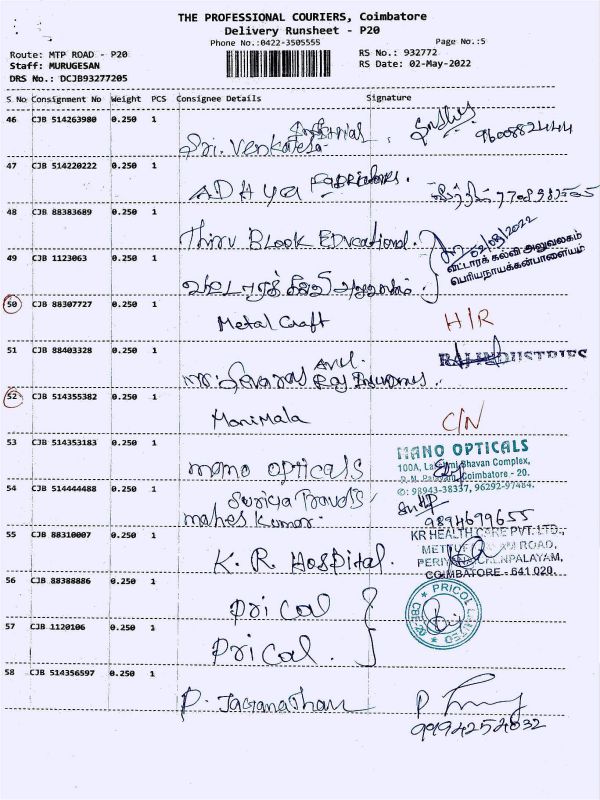 THE PROFESSIONAL COURIERS, Coimbatore
Delivery Runsheet - P20
Phone No.:0422-3505555
Page No.:5
Route: MTP ROAD - P20
RS No.: 932772
Staff: MURUGESAN
RS Date: 02-May-2022
DRS No.: DCJB93277205
S No Consignment No Weight PCS Consignee Details Signature
46 CJB 514263980 0.250 1
Sri. Venkatesa
47 CJB 514220222 0.250 1
ADHYA Fabricators.
48 CJB 88383689 0.250 1
Thiru Blook Educational.
02/05/2022
வட்டாரக் கல்வி அலுவலகம்
பெரியநாயக்கன்பாளையம்
49 CJB 1123063 0.250 1
50 CJB 88307727 0.250 1
Metal Craft H/R
51 CJB 88403328 0.250 1
RAJ INDUSTRIES
52 CJB 514355382 0.250 1
Manimala C/N
53 CJB 514353183 0.250 1
mano opticals
MANO OPTICALS
100A, Lakshmi Bhavan Complex,
Coimbatore - 20.
✆: 98943-38337, 96292-97484.
54 CJB 514444488 0.250 1
mahes kumar.
9894699655
55 CJB 88310007 0.250 1
K. R. Hospital.
KR HEALTH CARE PVT. LTD.,
ROAD,
COIMBATORE - 641 020.
56 CJB 88388886 0.250 1
Pricol
PRICOL LIMITED
CBE-20
57 CJB 1120106 0.250 1
Pricol.
58 CJB 514356597 0.250 1
P. Jaganathan